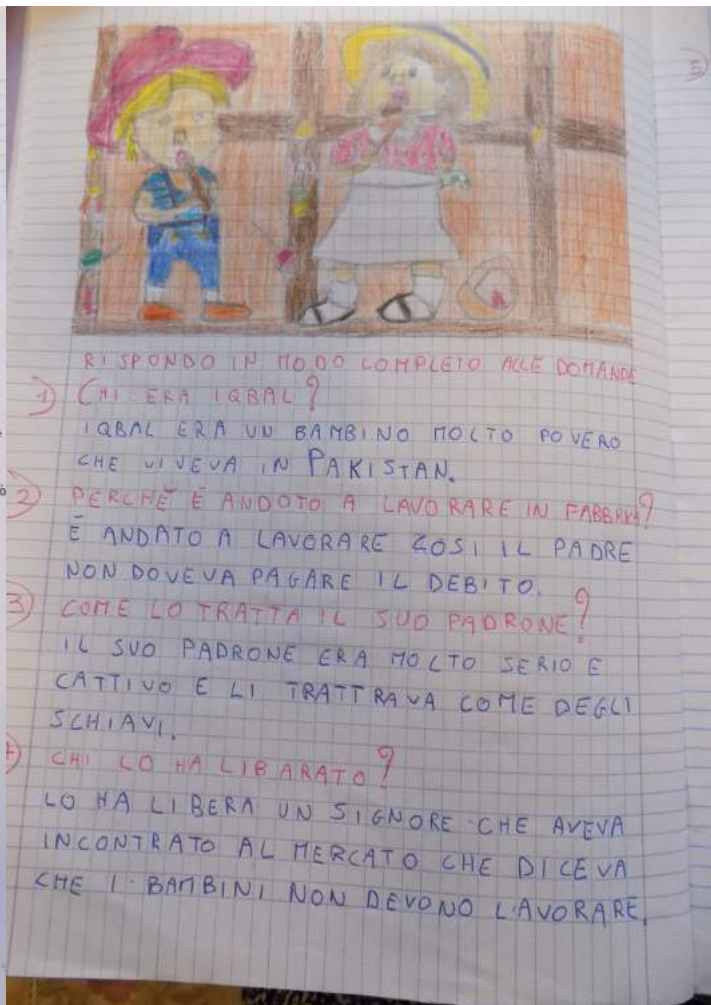 RISPONDO IN MODO COMPLETO ALLE DOMANDE
1) CHI ERA IQBAL?
IQBAL ERA UN BAMBINO MOLTO POVERO
CHE VIVEVA IN PAKISTAN.
2) PERCHÈ È ANDOTO A LAVORARE IN FABBRICA?
È ANDATO A LAVORARE COSI IL PADRE
NON DOVEVA PAGARE IL DEBITO.
3) COME LO TRATTA IL SUO PADRONE?
IL SUO PADRONE ERA MOLTO SERIO E
CATTIVO E LI TRATTRAVA COME DEGLI
SCHIAVI.
4) CHI LO HA LIBARATO?
LO HA LIBERA UN SIGNORE CHE AVEVA
INCONTRATO AL MERCATO CHE DICEVA
CHE I BAMBINI NON DEVONO LAVORARE.
5)